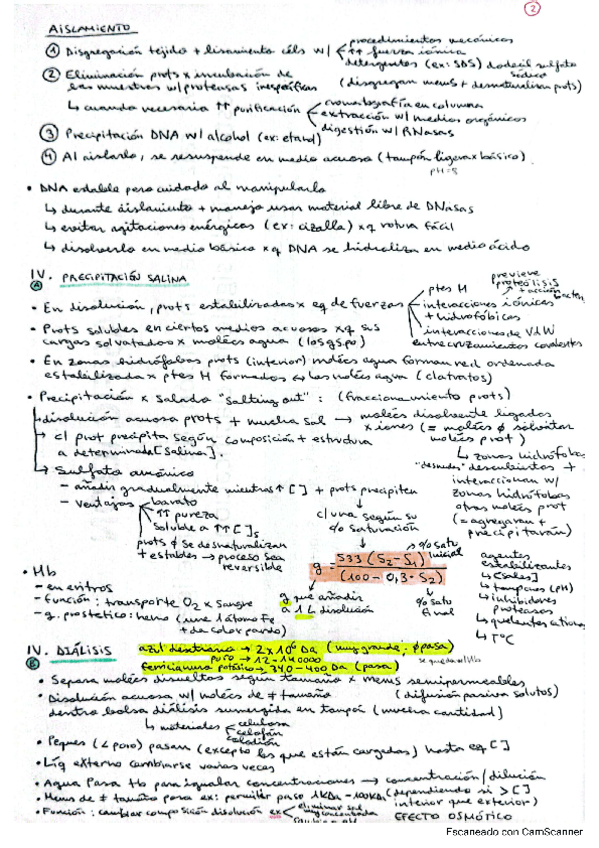 2
AISLAMIENTO
① Disgregación tejido + lisamiento céls w/ procedimientos mecánicos
↑↑ fuerza iónica
detergentes (ex: SDS) dodecil sulfato sódico
(disgregan membs + desnaturalizan prots)
② Eliminación prots x incubación de
las muestras w/ proteasas inespecíficas
↳ cuando necesaria ↑↑ purificación
cromatografía en columna
extracción w/ medios orgánicos
digestión w/ RNasas
③ Precipitación DNA w/ alcohol (ex: etanol)
④ Al aislarlo, se resuspende en medio acuoso (tampón ligerax básico)
pH=8
• DNA estable pero cuidado al manipularlo
↳ durante aislamiento + manejo usar material libre de DNasas
↳ evitar agitaciones enérgicas (ex: cizalla) xq rotura fácil
↳ disolverlo en medio básico xq DNA se hidroliza en medio ácido
IV. PRECIPITACIÓN SALINA
A
• En disolución, prots estabilizadas x eq de fuerzas
ptes H
interacciones iónicas
+ hidrofóbicas
interacciones de VdW
entrecruzamientos covalentes
previene
proteólisis
+ acción
• Prots solubles en ciertos medios acuosos xq sus
cargas solvatadas x molécs agua
• En zonas hidrófobas prots (interior) molécs agua forman red ordenada
estabilizada x ptes H formados ↔ las molécs agua (clatratos)
• Precipitación x salado "salting out": (fraccionamiento prots)
↳ disolución acuosa prots + mucha sal → molécs disolvente ligadas
x iones (= molécs ∅ solvatan
molécs prot)
↳ zonas hidrófobas
"desnudas" descubiertas +
interaccionan w/
zonas hidrófobas
otras molécs prot
(= agregaran +
precipitarán)
→ c/ prot precipita según composición + estructura
a determinada [salina].
↳ Sulfato amónico
- añadir gradualmente mientras ↑ [ ] + prots precipiten
c/ una según su
% saturación
- ventajas
barato
↑↑ pureza
soluble a ↑↑ [ ]s
prots ∅ se desnaturalizan
+ estables → proceso sea
reversible
g = 533 (S₂ - S₁) / (100 - 0,3 · S₂)
% satu
inicial
g que añadir
a 1 L disolución
% satu
final
agentes
estabilizantes
↳ [sales]
↳ tampones (pH)
↳ inhibidores
proteasas
↳ quelantes cationes
↳ TºC
• Mb
- en eritros
- función: transporte O₂ x sangre
- g. prostético: hemo (une 1 átomo Fe
+ da color pardo)
IV. DIÁLISIS
B
azul dextrano → 2x10⁶ Da (muy grande: ∅ pasa)
poro → 12-140000
ferricianuro potásico → 340-400 Da (pasa)
• Separa molécs disueltas según tamaño x membs semipermeables
(difusión pasiva solutos)
• Disolución acuosa w/ molécs de ≠ tamaño
dentro bolsa diálisis sumergida en tampón (mucha cantidad)
↳ materiales
celulosa
celofán
colodión
• Peques (∠ poro) pasan (excepto los que están cargados) hasta eq [ ]
• Líq externo cambiarse varias veces
• Agua pasa tb para igualar concentraciones → concentración/dilución
(dependiendo si > [ ]
interior que exterior)
EFECTO OSMÓTICO
• Membs de ≠ tamaño poro ex: permitir paso 1KDa - 100KDa
• Función: cambiar composición disolución ex
eliminar sal
Escaneado con CamScanner